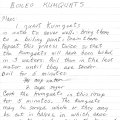 BOILED KUMQUATS
1 quart Kumquats
in water to cover well. Bring them
to a boiling point. Drain them.
Repeat this process twice so that
the Kumquats will have been boiled
in 3 waters. Boil them in the last
water until they are tender.
Boil for 5 minutes
1 cup water
2 cups sugar
Cook the Kumquats in this syrup
for 5 minutes. The Kumquats
may be served whole or they may
be cut in halves, in which